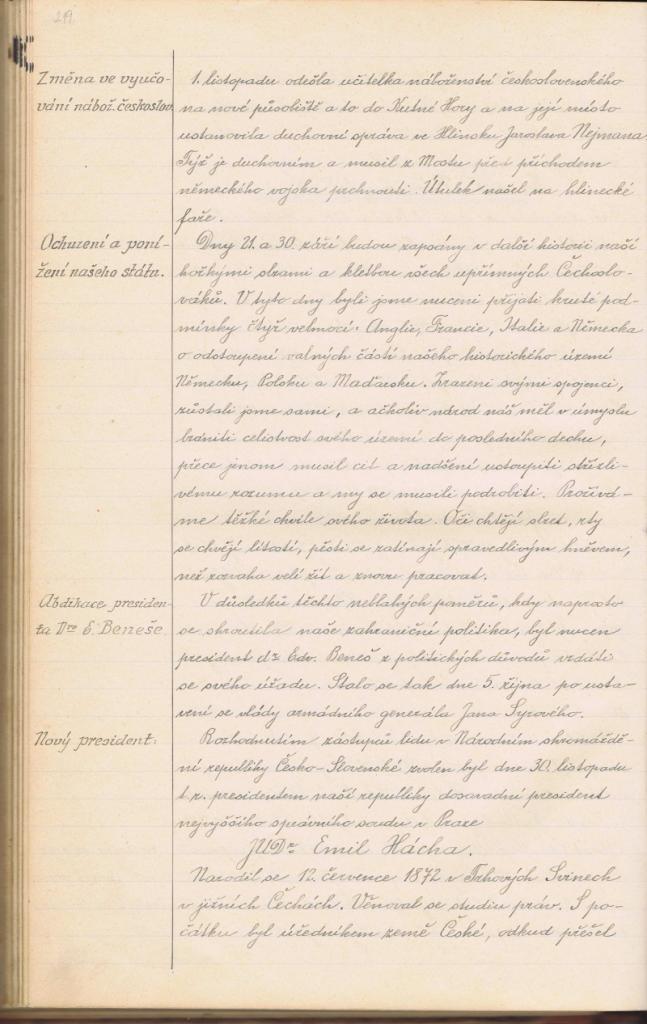 219.
Změna ve vyučo-
vání nábož. českoslov.
1. listopadu odešla učitelka náboženství československého
na nové působiště a to do Kutné Hory a na její místo
ustanovila duchovní správa ve Hlinsku Jaroslava Nejmana.
Týž je duchovním a musil z Mostu před příchodem
německého vojska prchnouti. Útulek našel na hlinecké
faře.
Ochuzení a poní-
žení našeho státu.
Dny 21. a 30. září budou zapsány v další historii naší
hořkými slzami a kletbou všech upřímných Čechoslo-
váků. V tyto dny byli jsme nuceni přijati kruté pod-
mínky čtyř velmocí: Anglie, Francie, Italie a Německa
o odstoupení valných částí našeho historického území
Německu, Polsku a Maďarsku. Zrazeni svými spojenci,
zůstali jsme sami, a ačkoliv národ náš měl v úmyslu
brániti celistvost svého území do posledního dechu,
přece jenom musil cit a nadšení ustoupiti střízli-
vému rozumu a my se musili podrobiti. Prožívá-
me těžké chvíle svého života. Oči chtějí slzet, rty
se chvějí lítostí, pěsti se zatínají spravedlivým hněvem,
než rozvaha velí žít a znovu pracovat.
Abdikace presiden-
ta Dra E. Beneše
V důsledků těchto neblahých poměrů, kdy naprosto
se zhroutila naše zahraniční politika, byl nucen
president dr. Edv. Beneš z politických důvodů vzdáti
se svého úřadu. Stalo se tak dne 5. října po usta-
vení se vlády armádního generála Jana Syrového.
Nový president:
Rozhodnutím zástupců lidu v Národním shromáždě-
ní republiky Česko-Slovenské zvolen byl dne 30. listopadu
t. r. presidentem naší republiky dosavadní president
nejvyššího správního soudu v Praze
JUDr Emil Hácha.
Narodil se 12. července 1872 v Trhových Svinech
v jižních Čechách. Věnoval se studiu práv. S po-
čátku byl úředníkem země České, odkud přešel